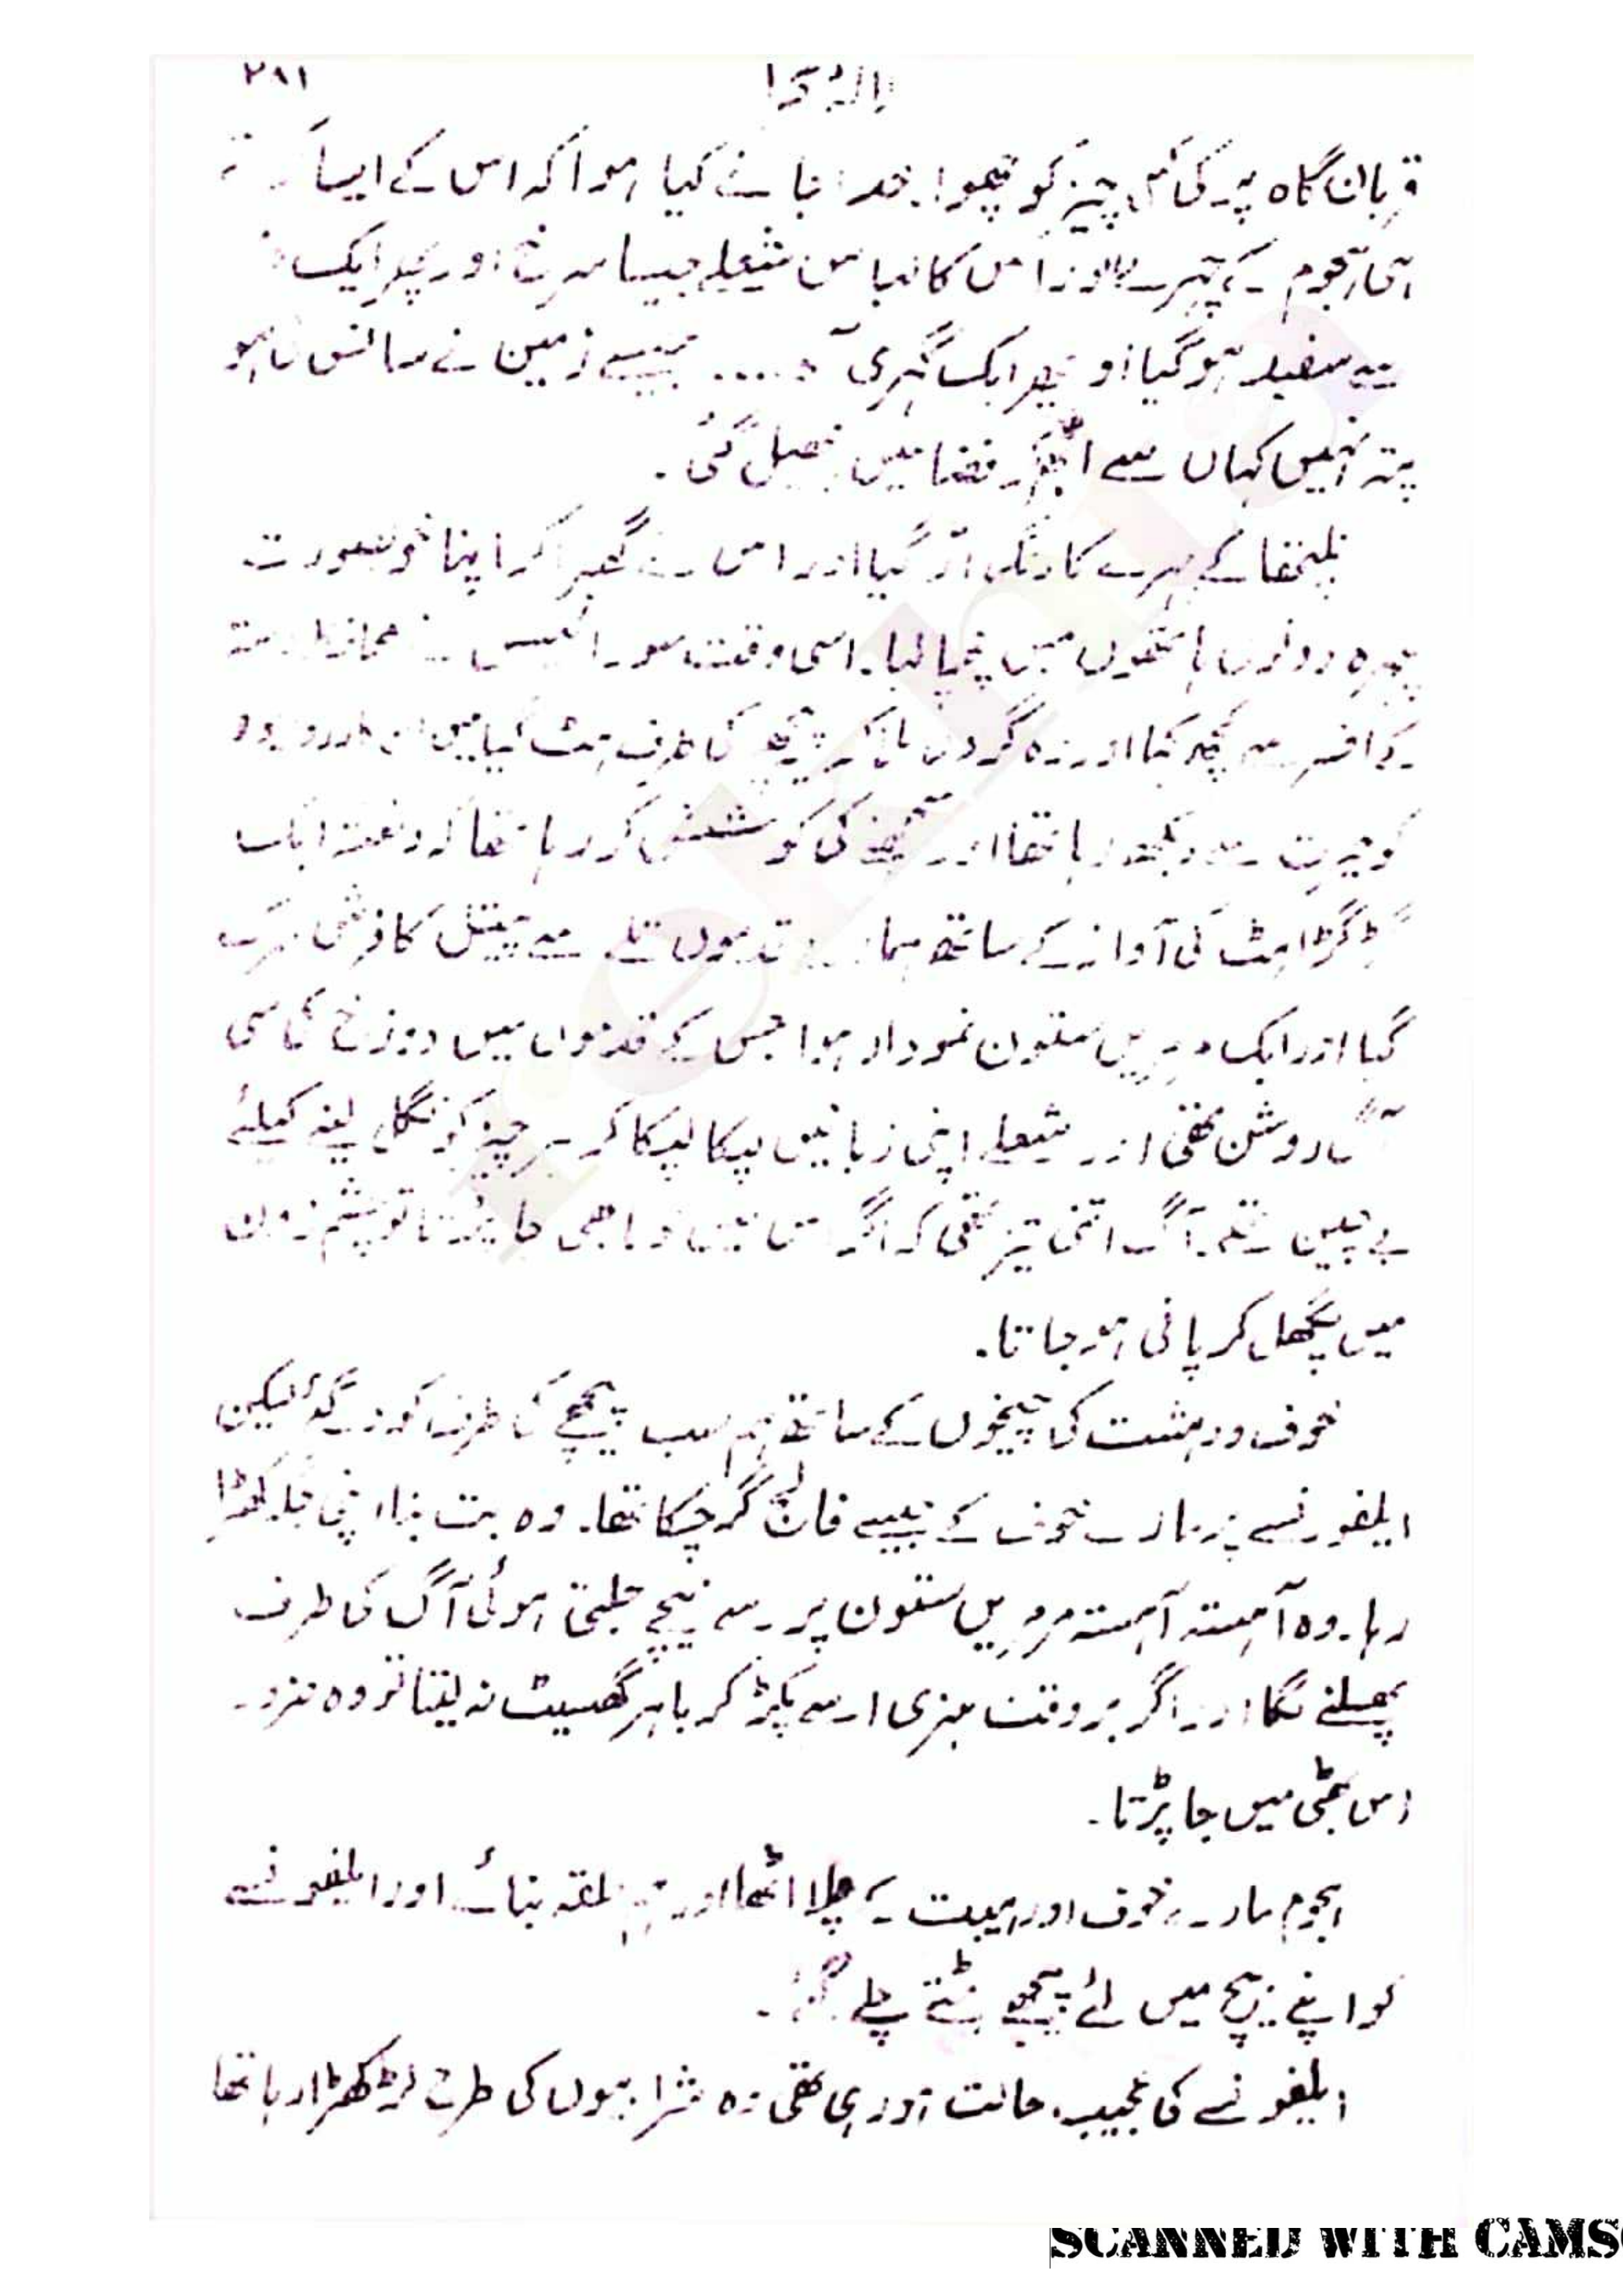 ۲۸۱
قربان گاہ پر کی کسی چیز کو چھوا۔ خدا جانے کیا ہوا کہ اس کے ایسا کرتے
ہی ہجوم کے چہرے اور اس کا لباس شعلے جیسا سرخ اور پھر ایک
سفید ہو گیا اور پھر ایک گہری آہ .... جیسے زمین نے سانس لیا ہو
پتہ نہیں کہاں سے ابھر کر فضا میں پھیل گئی۔
کے چہرے کا رنگ اڑ گیا اور اس نے گھبرا کر اپنا خوبصورت
چہرہ دونوں ہاتھوں میں چھپا لیا۔ اسی وقت سورائیس نے محافظ دستہ
کے افسر سے کچھ کہا اور وہ گردن ہلا کر پیچھے کی طرف ہٹ گیا میں اس
کو حیرت سے دیکھ رہا تھا اور سمجھنے کی کوشش کر رہا تھا کہ دفعتہ ایک
گڑگڑاہٹ کی آواز کے ساتھ ہمارے قدموں تلے سے پیتل کا فرش سرک
گیا اور ایک مرمریں ستون نمودار ہوا جس کے قدموں میں دوزخ کی سی
آگ روشن تھی اور شعلے اپنی زبانیں لپکا لپکا کر ہر چیز کو نگل لینے کیلئے
بے چین تھے۔ آگ اتنی تیز تھی کہ اگر اس میں لوہا بھی جا پڑتا تو چشم زدن
میں پگھل کر پانی ہو جاتا۔
خوف و دہشت کی چیخوں کے ساتھ ہم سب پیچھے کی طرف کود گئے لیکن
ایلفونسے پر مارے خوف کے جیسے فالج گر چکا تھا۔ وہ بت بنا اپنی جگہ کھڑا
رہا۔ وہ آہستہ آہستہ مرمریں ستون پر سے نیچے جلتی ہوئی آگ کی طرف
پھسلنے لگا اور اگر بر وقت ہنری اسے پکڑ کر باہر گھسیٹ نہ لیتا تو وہ ضرور
اس بھٹی میں جا پڑتا۔
ہجوم مارے خوف اور ہیبت کے چلا اٹھا اور ہم حلقہ بنائے اور ایلفونسے
کو اپنے بیچ میں لئے پیچھے ہٹتے چلے گئے۔
ایلفونسے کی عجیب حالت ہو رہی تھی وہ شرابیوں کی طرح لڑکھڑا رہا تھا
rekhta
SCANNED WITH CAMS